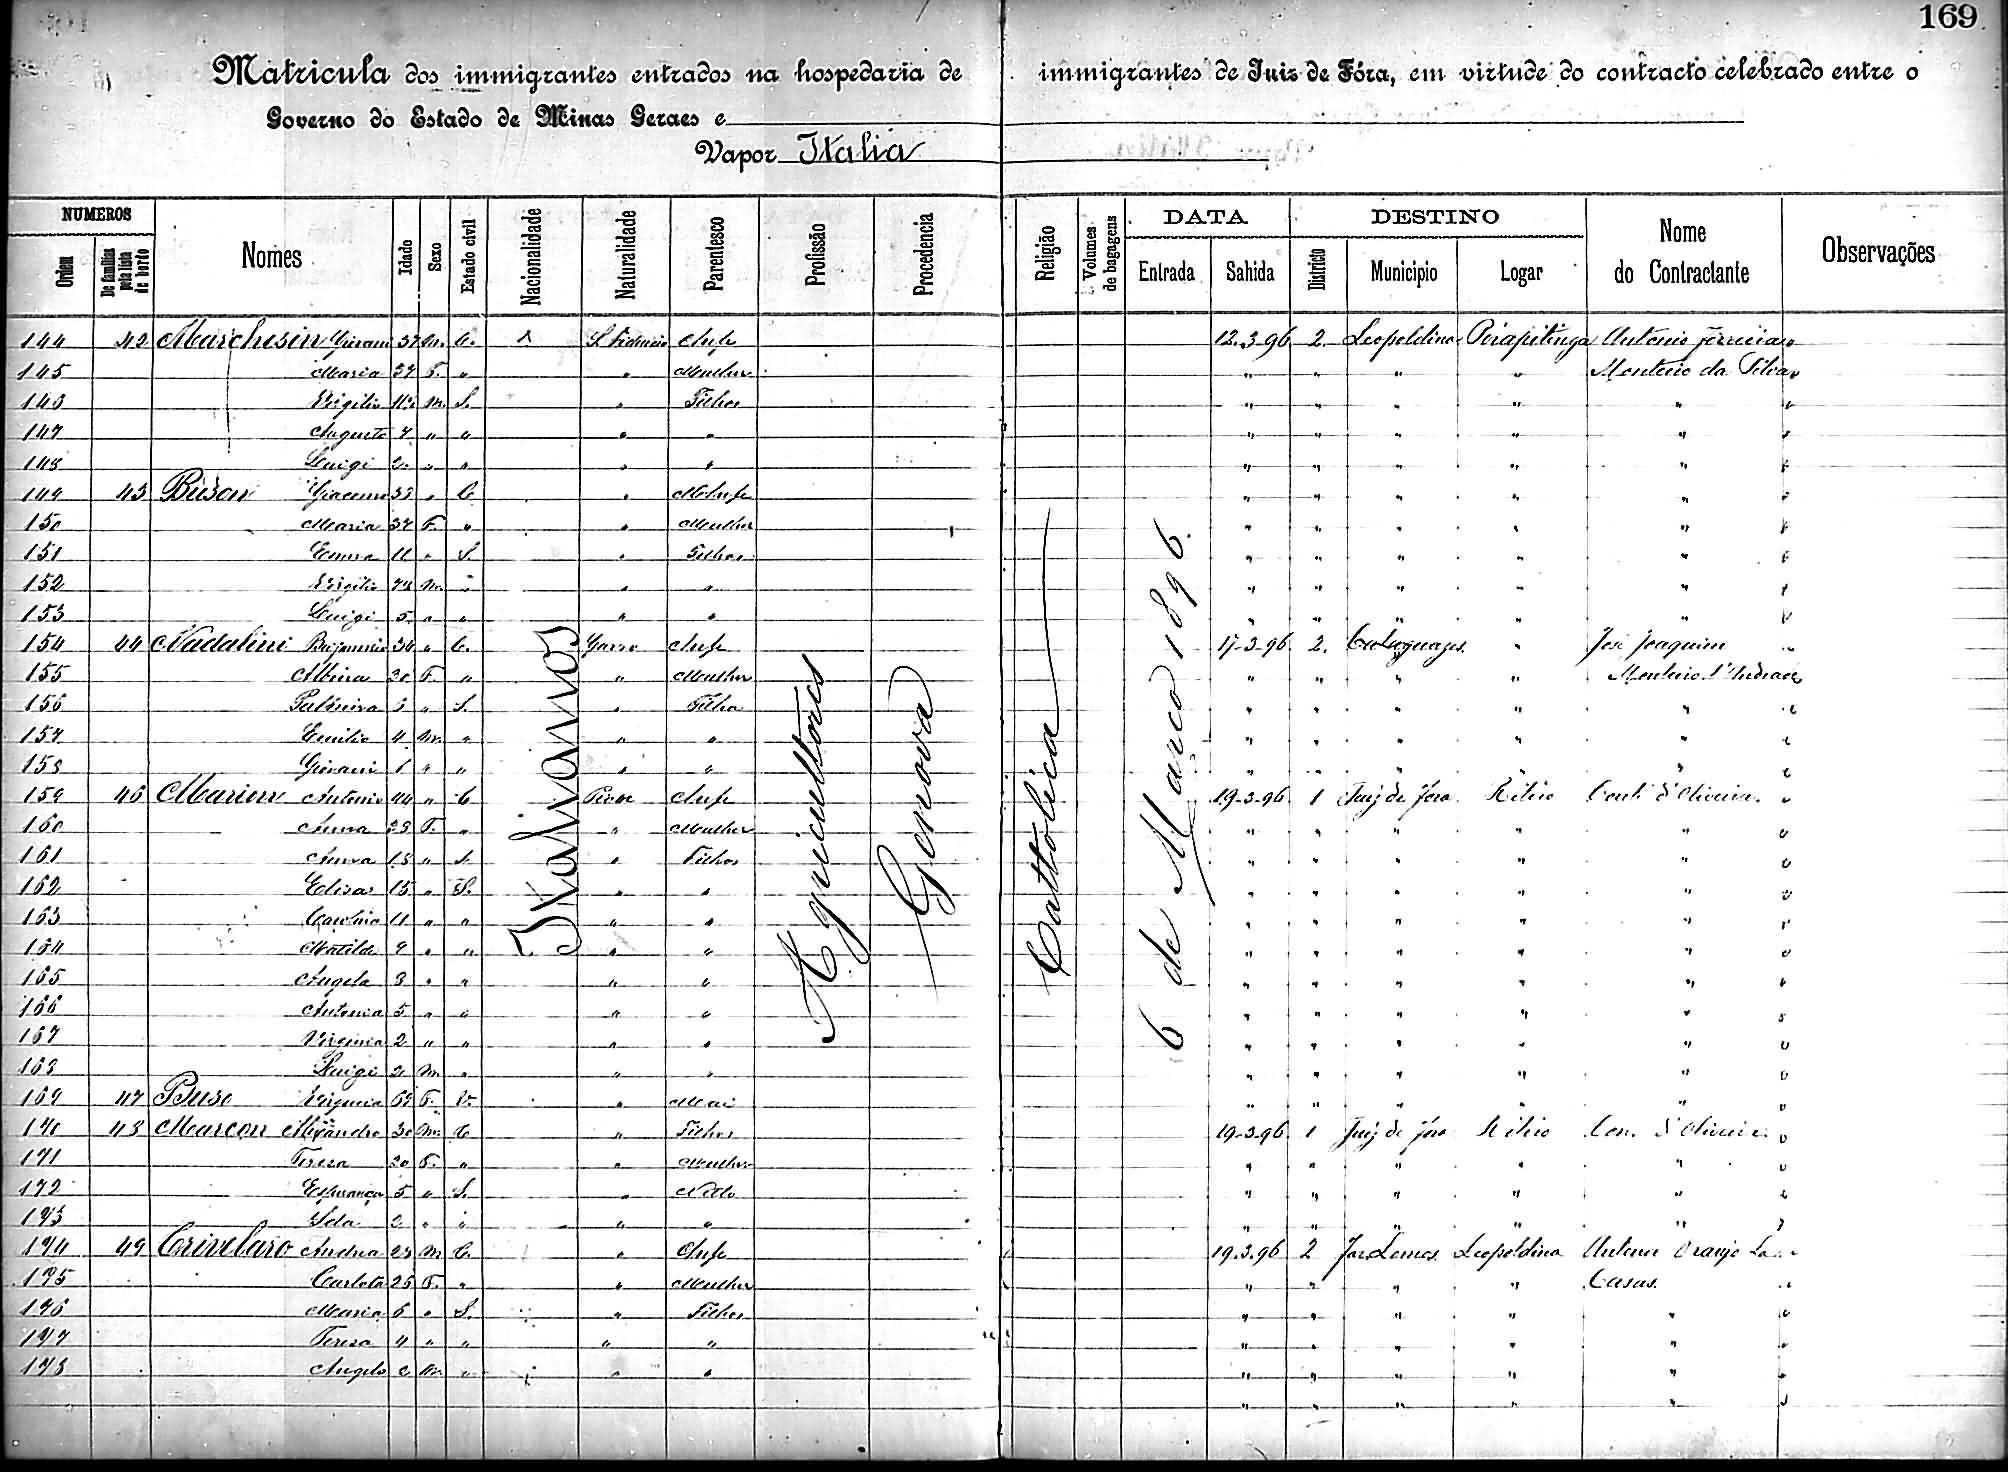 169
Matricula dos immigrantes entrados na hospedaria de immigrantes de Juiz de Fóra, em virtude do contracto celebrado entre o
Governo do Estado de Minas Geraes e
Vapor Italia
NUMEROS
Ordem
De familias pela lista de bordo
Nomes
Idade
Sexo
Estado civil
Nacionalidade
Naturalidade
Parentesco
Profissão
Procedencia
Religião
Volumes de bagagens
DATA
Entrada
Sahida
DESTINO
Districto
Municipio
Logar
Nome do Contractante
Observações
Italianos
Agricultores
Genova
Cattolica
6 de Março 1896.
144 42 Marchesin 37 M. C. Chefe 12.3.96 2 Leopoldina Pirapitinga Antonio Ferreira
145 Maria 37 F. " " Mulher " " " " Monteiro da Silva
146 Virgilio M. S. " Filhos " " " " "
147 Augusto 7 " " " " " " " " "
148 Luigi 2 " " " " " " " " "
149 43 Giacomo 33 " C " Chefe " " " " "
150 Maria 37 F. " " Mulher " " " " "
151 Emma 11 " S. " Filhos " " " " "
152 Virgilio M. " " " " " " " "
153 Luigi 5 " " " " " " " " "
154 44 Nadalini 34 " C. Chefe 17-3-96 2. Cataguazes " José Joaquim
155 Albina 30 F. " " Mulher " " " " Monteiro d'Andrade
156 6 " S. " Filha " " " " "
157 Emilio 4 M. " " " " " " " "
158 Giovani 1 " " " " " " " " "
159 46 Antonio 44 " C Chefe 19-3-96 1 Juiz de Fora d'Oliveira
160 Anna F. " " Mulher " " " " "
161 Anna 18 " S. " Filhos " " " " "
162 Elisa 15 " S. " " " " " " "
163 11 " " " " " " " " "
164 Matilde 9 " " " " " " " " "
165 Angela 8 " " " " " " " " "
166 Antonia 5 " " " " " " " " "
167 Virginia 2 " " " " " " " " "
168 Luigi 2 M. " " " " " " " "
169 47 Buso F. V. " Mai " " " " "
170 48 Marcon 30 M. C " Filhos 19-3-96 1 Juiz de Fora d'Oliveira
171 Teresa 30 F. " " Mulher " " " " "
172 Esperança 5 " S. " Netto " " " " "
173 Ida 2 " " " " " " " " "
174 49 Crivelaro Andrea M C. " Chefe 19.3.96 2 Leopoldina Araujo
175 Carlota 25 F. " " Mulher " " " " Casas.
176 Maria 6 " S. " Filhos " " " " "
177 Teresa 4 " " " " " " " " "
178 Angelo 2 M. " " " " " " " "
" " " " "